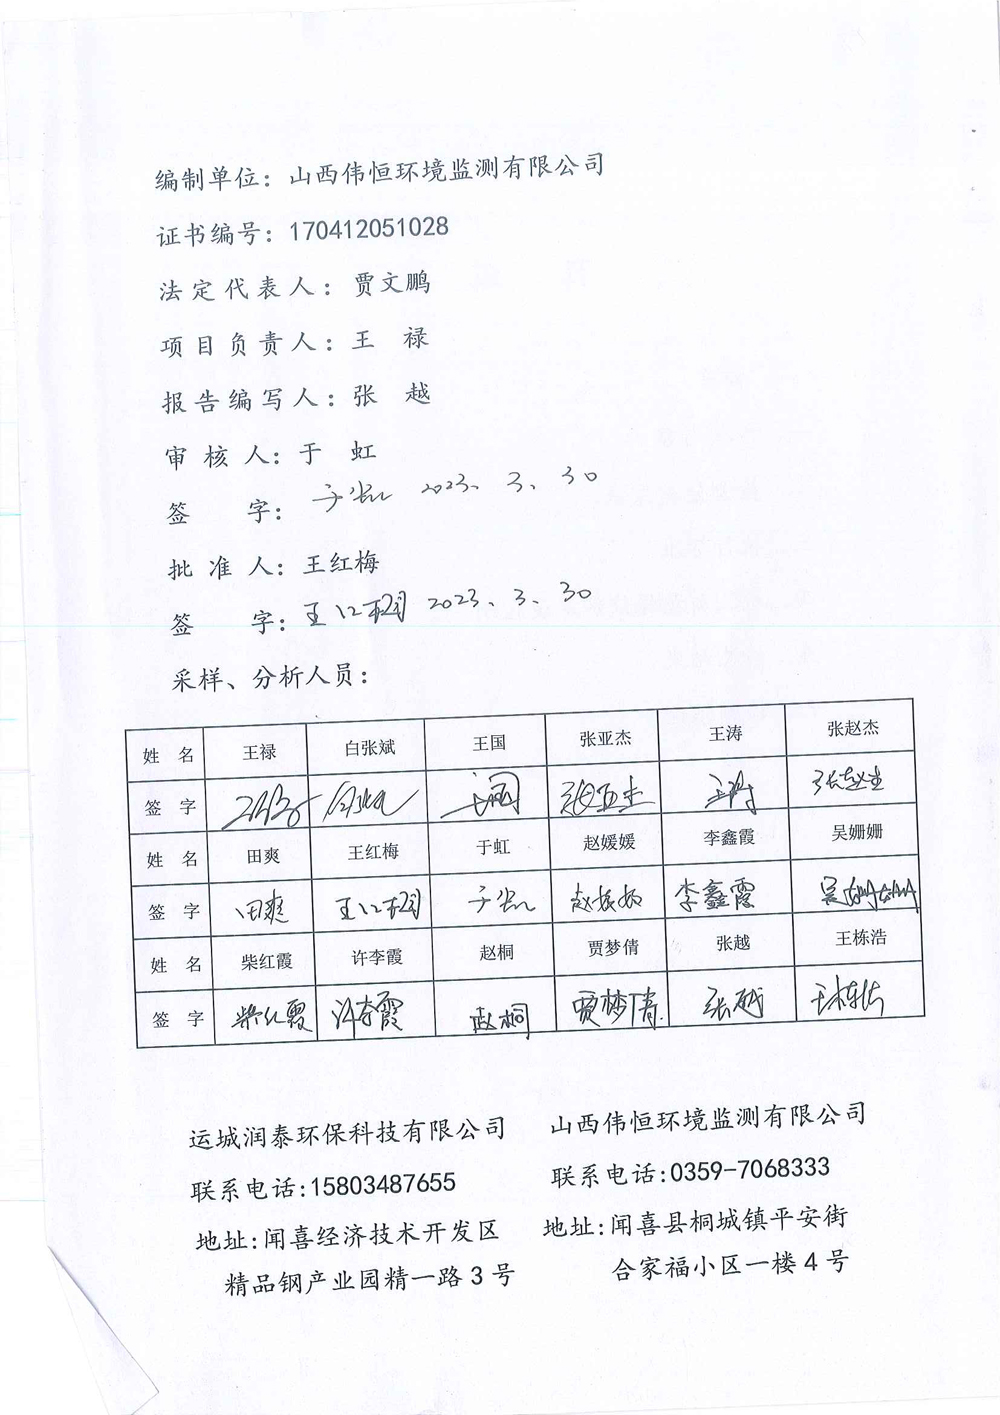 编制单位：山西伟恒环境监测有限公司
证书编号：170412051028
法定代表人：贾文鹏
项目负责人：王 禄
报告编写人：张 越
审核人：于 虹
签 字：于虹 2023、3、30
批准人：王红梅
签 字：王红梅 2023、3、30
采样、分析人员：
姓 名 王禄 白张斌 王国 张亚杰 王涛 张赵杰
签 字 王禄 白张斌 王国 张亚杰 王涛 张赵杰
姓 名 田爽 王红梅 于虹 赵媛媛 李鑫霞 吴姗姗
签 字 田爽 王红梅 于虹 赵媛媛 李鑫霞 吴姗姗
姓 名 柴红霞 许李霞 赵桐 贾梦倩 张越 王栋浩
签 字 柴红霞 许李霞 赵桐 贾梦倩 张越 王栋浩
运城润泰环保科技有限公司 山西伟恒环境监测有限公司
联系电话:15803487655 联系电话:0359-7068333
地址:闻喜经济技术开发区 地址:闻喜县桐城镇平安街
精品钢产业园精一路3号 合家福小区一楼4号